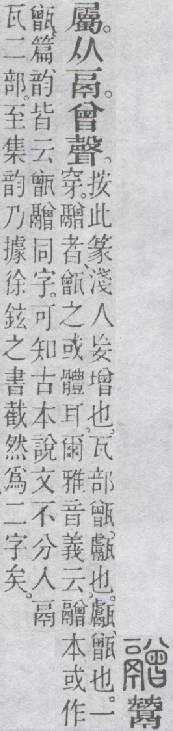 䰝 鬵
屬。从鬲。曾聲。
按此篆淺人妄增也。瓦部甑、甗也。甗、甑也。一
穿。䰝者、甑之或體耳。爾雅音義云䰝本或作
甑。篇、韵皆云甑䰝同字。可知古本說文不分人鬲
瓦二部。至集韵乃據徐鉉之書截然爲二字矣。